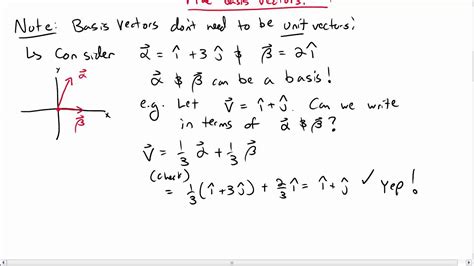 basis vectors.
Note: Basis vectors don't need to be unit vectors!
↳ Consider α⃗ = î + 3ĵ & β⃗ = 2î
α⃗ & β⃗ can be a basis!
e.g. Let v⃗ = î + ĵ. Can we write
in terms of α⃗ & β⃗?
v⃗ = 1/3 α⃗ + 1/3 β⃗
(check)
= 1/3 (î + 3ĵ) + 2/3 î = î + ĵ ✓ Yep!
y
α⃗
x
β⃗